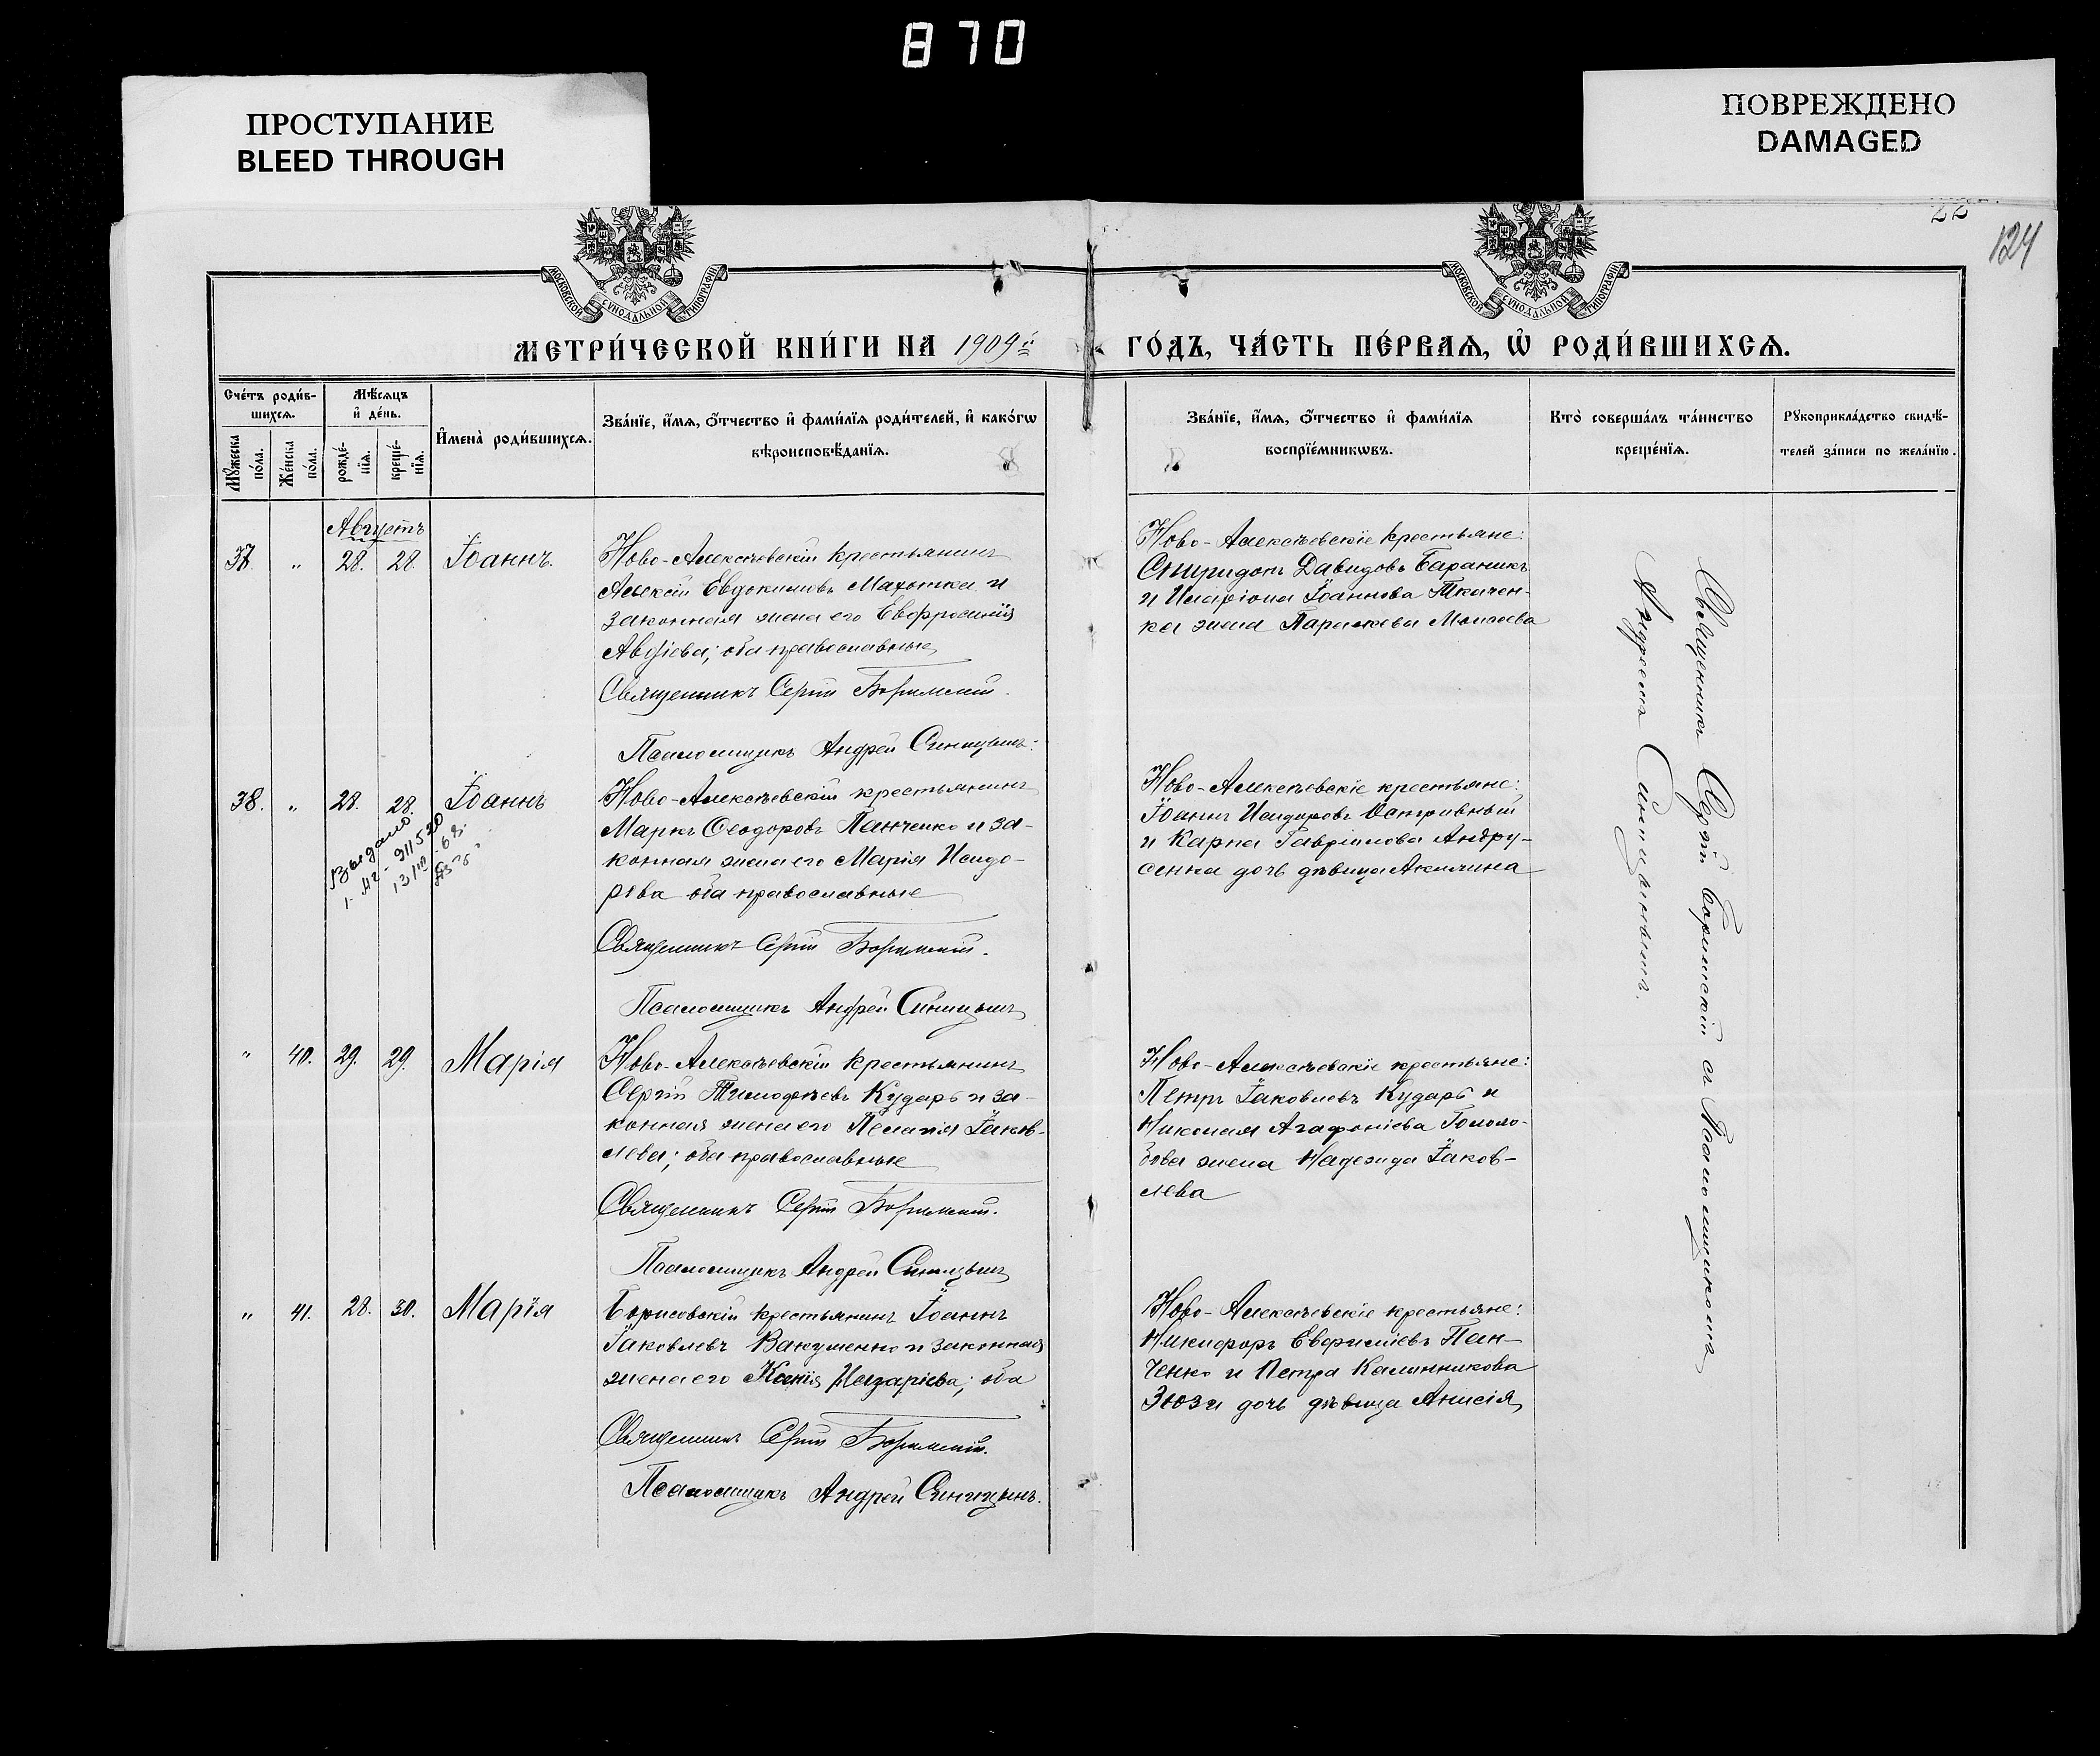 870
ПРОСТУПАНИЕ
BLEED THROUGH
ПОВРЕЖДЕНО
DAMAGED
22
124
МОСКОВСКОЙ СѴНОДАЛЬНОЙ ТИПОГРАФІИ
МОСКОВСКОЙ СѴНОДАЛЬНОЙ ТИПОГРАФІИ
МЕТРИ́ЧЕСКОЙ КНИ́ГИ НА 1909й
ГО́ДЪ, ЧА́СТЬ ПЕ́РВАѦ, Ѡ҆ РОДИ́ВШИХСѦ.
Сче́тъ роди́в-
шихсѧ.
Мѣ́сѧцъ
и҆ де́нь.
Мꙋ́жеска по́ла.
Же́нска по́ла.
рожде́-
нїѧ.
креще́-
нїѧ.
И҆мена̀ роди́вшихсѧ.
Зва́нїе, и҆́мѧ, ѻ҆́тчество и҆ фами́лїѧ роди́телей, и҆ како́гѡ
вѣроисповѣ́данїѧ.
Зва́нїе, и҆́мѧ, ѻ҆́тчество и҆ фами́лїѧ
воспрїе́мникѡвъ.
Кто̀ соверша́лъ та́инство
креще́нїѧ.
Рꙋкоприкла́дство свидѣ́-
телей за́писи по жела́нїю.
Августъ
37. " 28. 28 Іоаннъ.
Ново-Алексѣевскій крестьянинъ
Алексій Евдокимовъ Махотка и
законная жена его Евфросинія
Авдіева; оба православные
Священникъ Сергій Боримскій.
Псаломщикъ Андрей Синицынъ.
Ново-Алексѣевскіе крестьяне:
Спиридонъ Давидовъ Бараникъ
и Иларіона Іоаннова Ткачен-
ка жена Параскева Моисеева
38. " 28. 28. Іоаннъ
Выдано
Ново-Алексѣевскій крестьянинъ
Маркъ Ѳеодоровъ Панченко и за-
конная жена его Марія Исидо-
рова оба православные
Священникъ Сергій Боримскій.
Псаломщикъ Андрей Синицынъ
Ново-Алексѣевскіе крестьяне:
Іоаннъ Исидоровъ Остривный
и Карпа Гавріилова Андру-
сенка дочь дѣвица Акилина
" 40. 29. 29. Марія
Ново-Алексѣевскій крестьянинъ
Сергій Тимофѣевъ Кударь и за-
конная жена его Пелагія Іаков-
лева; оба православные
Священникъ Сергій Боримскій.
Псаломщикъ Андрей Синицынъ
Ново-Алексѣевскіе крестьяне:
Петръ Іаковлевъ Кударь и
Николая Агафоніева Гололо-
бова жена Надежда Іаков-
лева
" 41. 28. 30. Марія
Борисовскій крестьянинъ Іоаннъ
Іаковлевъ Вакуленко и законная
жена его Ксенія Назаріева; оба
Священникъ Сергій Боримскій.
Псаломщикъ Андрей Синицынъ.
Ново-Алексѣевскіе крестьяне:
Никифоръ Евфиміевъ Пан-
ченко и Петра Калинникова
Зюзи дочь дѣвица Анисія
Священникъ Сергій Боримскій съ Псаломщикомъ
Андреемъ Синицынымъ.